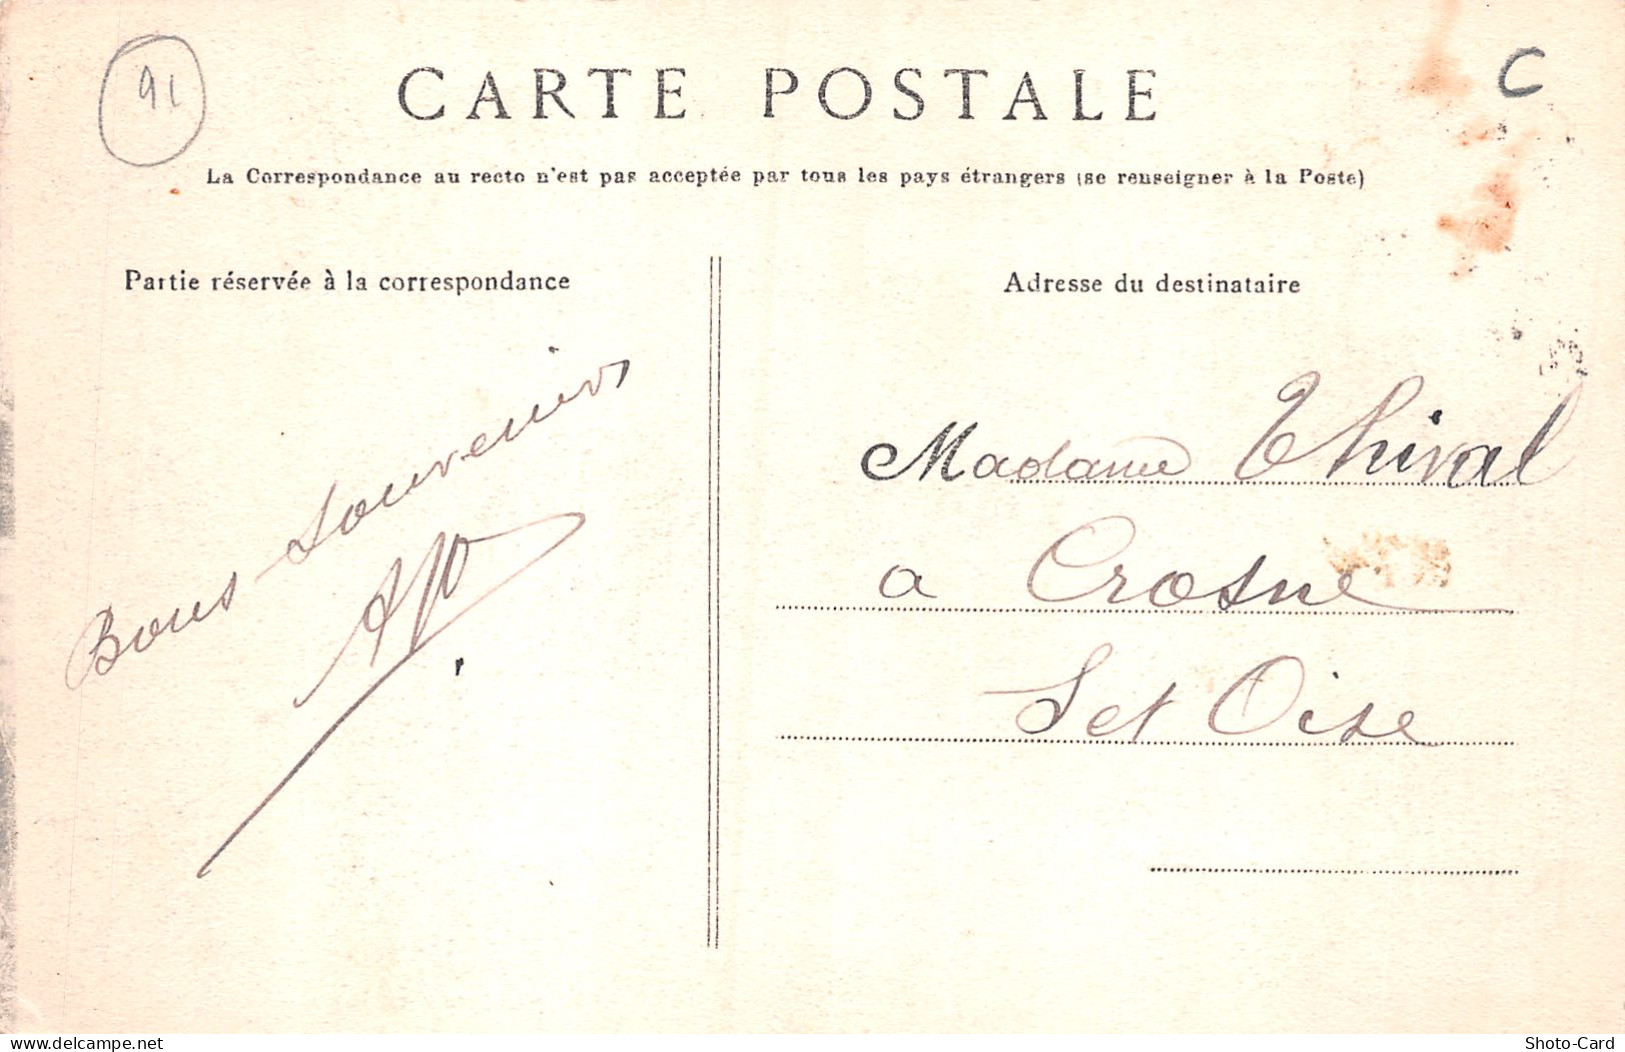 91
C
CARTE POSTALE
La Correspondance au recto n'est pas acceptée par tous les pays étrangers (se renseigner à la Poste)
Partie réservée à la correspondance
Bons Souvenirs
Adresse du destinataire
Madame Thival
a Crosne
S et Oise
www.delcampe.net
Shoto-Card